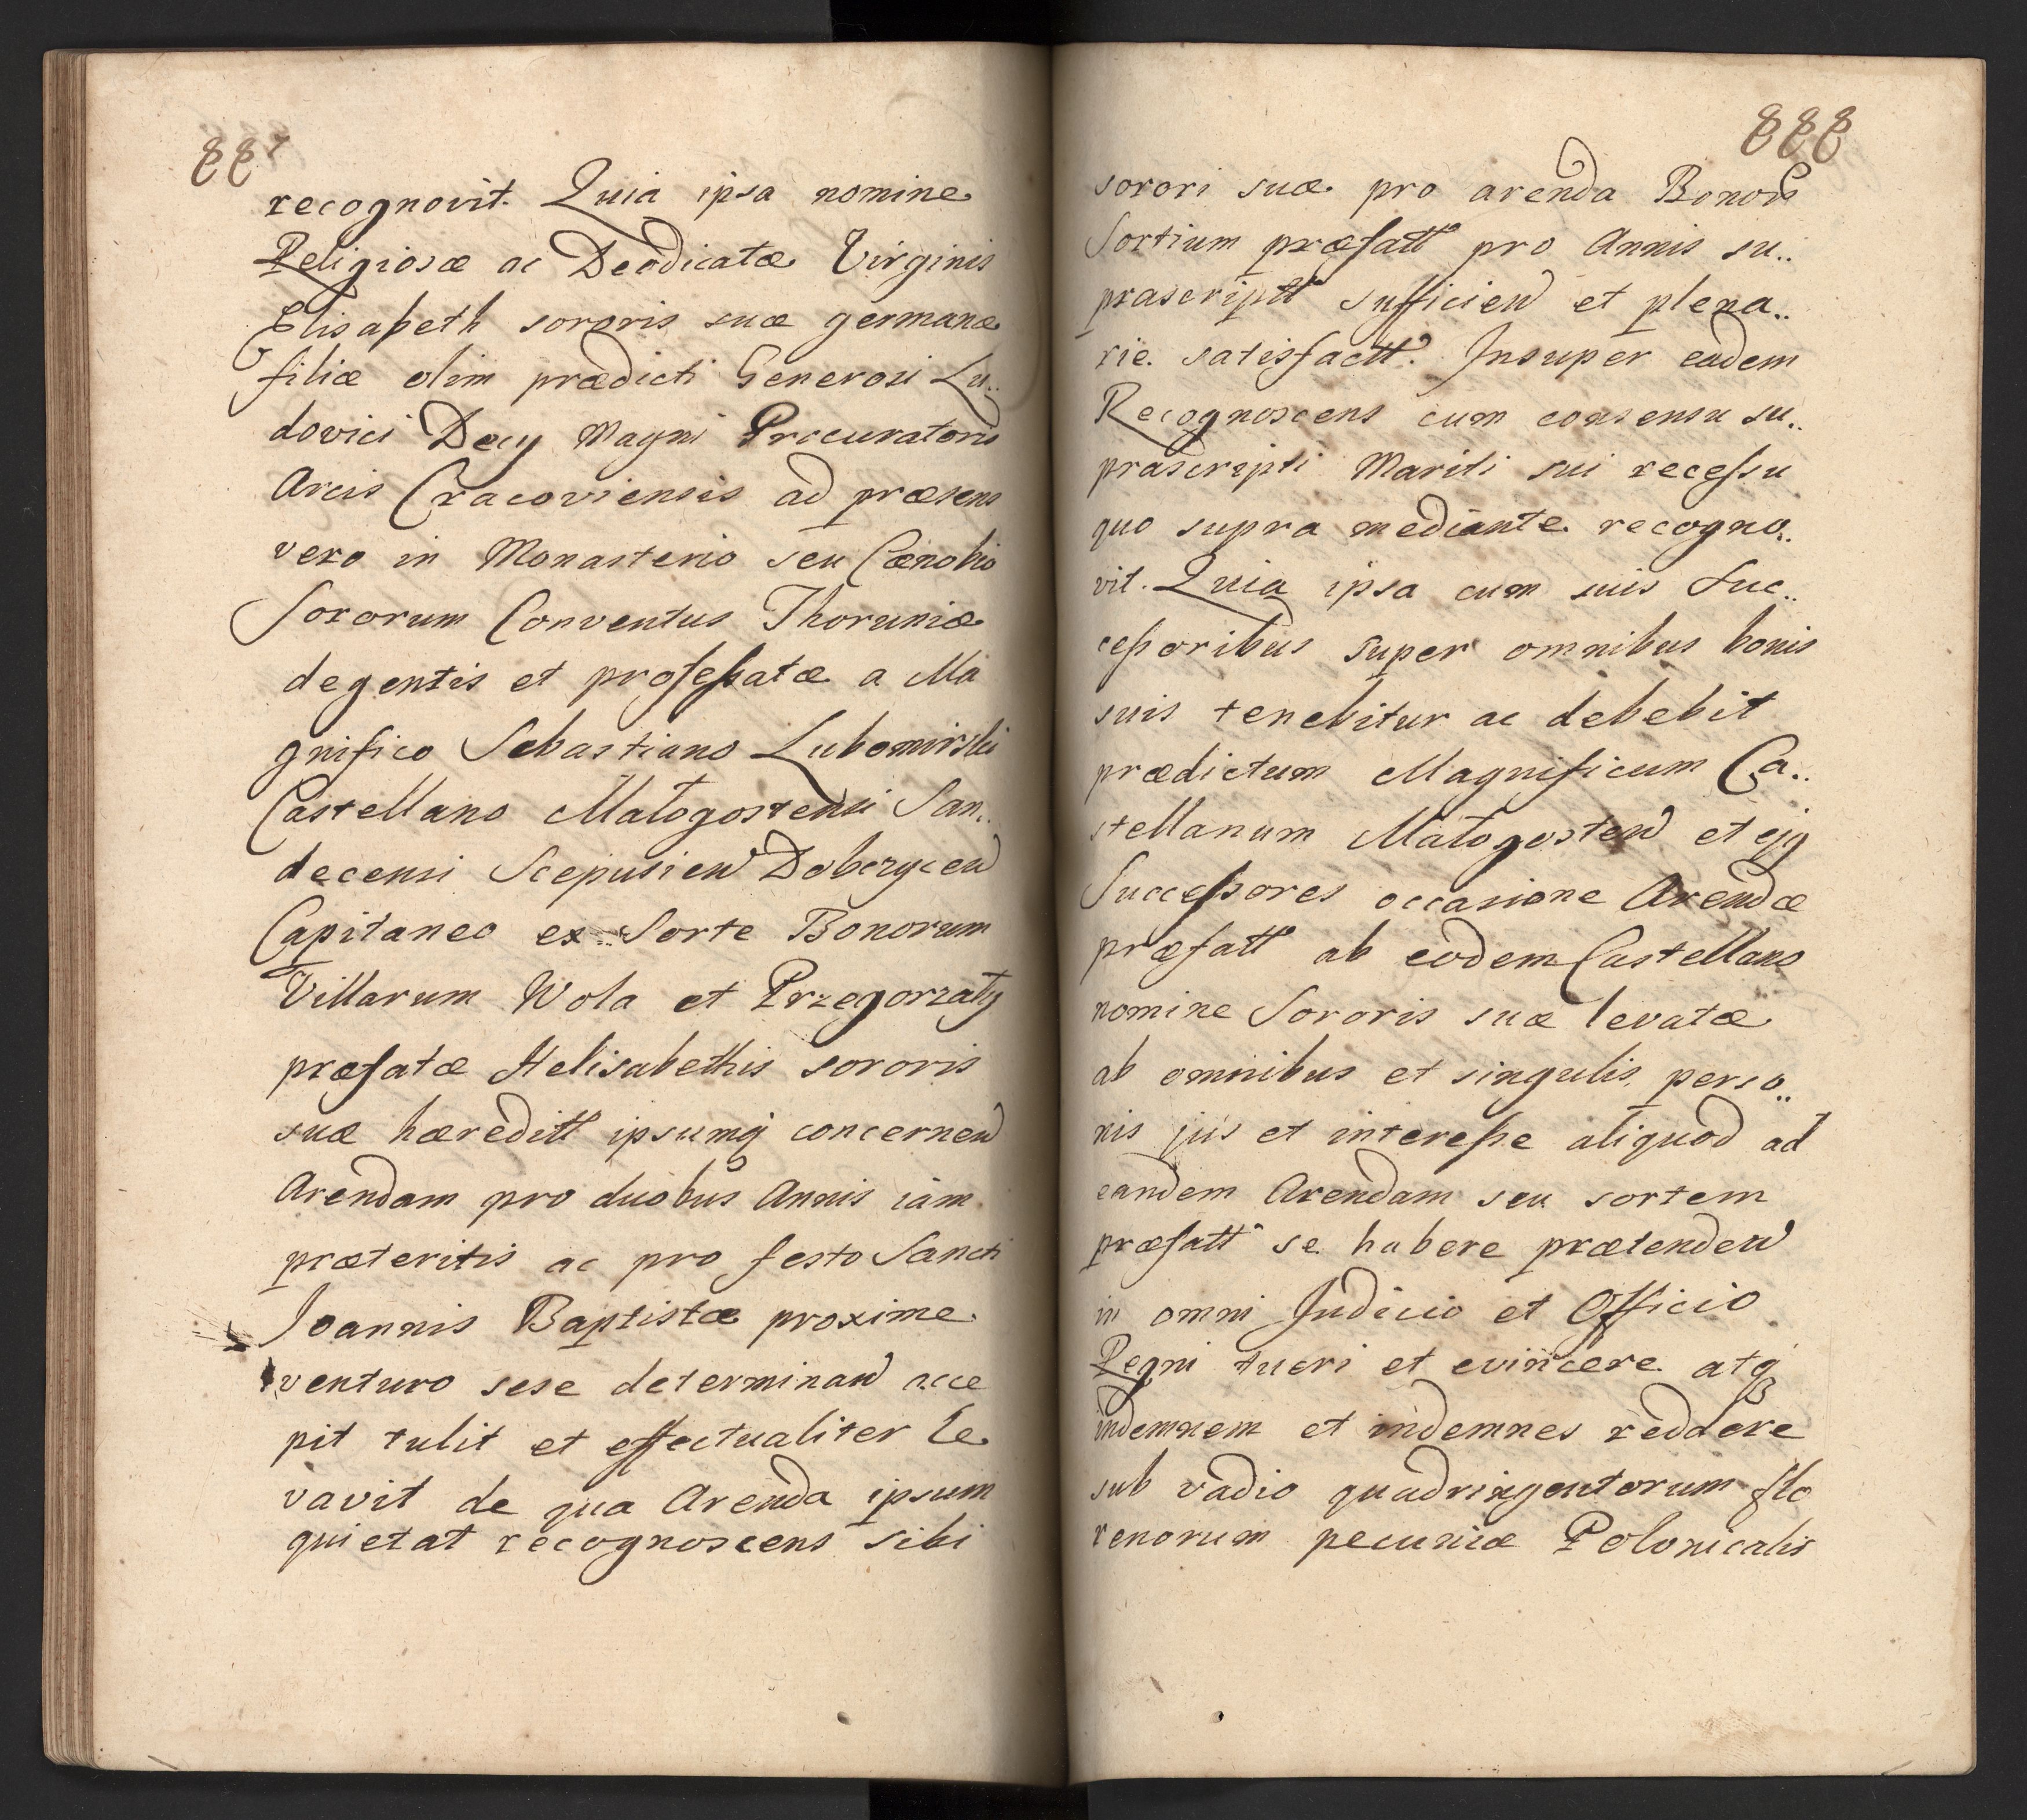 887
recognovit. Quia ipsa nomine
Religiosæ ac Deodicatæ Virginis
Elisabeth sororis suæ germanæ
filiæ olim prædicti Generosi Lu..
dovici Decy Magni Procuratoris
Arcis Cracoviensis ad præsens
vero in Monasterio seu Cænobio
Sororum Conventus Thoruniæ
degentis et professatæ a Ma
gnifico Sebastiano Lubomirski
Castellano Małogostensi San..
decensi Scepusien Dobczycen
Capitaneo ex Sorte Bonorum
Villarum Wola et Przegorzały
præfatæ Helisabethis sororis
suæ hæreditt ipsumq concernen
Arendam pro duobus Annis iam
præteritis ac pro festo Sancti
Joannis Baptistæ proxime
venturo sese determinan acce
pit tulit et effectualiter le
vavit de qua Arenda ipsum
quietat recognoscens sibi
888
sorori suæ pro arenda Bonor
Sortium præfatt pro Annis su..
prascriptt sufficien et plena..
rie satisfactt. Insuper eadem
Recognoscens cum consensu su..
prascripti Mariti sui recessu
quo supra mediante recogno..
vit. Quia ipsa cum suis Suc..
cessoribus super omnibus bonis
suis tenebitur ac debebit
prædictum Magnificum Ca..
stellanum Małogosten et ejq
Successores occasione Arendæ
præfatt ab eodem Castellano
nomine Sororis suæ levatæ
ab omnibus et singulis perso..
nis jus et interesse aliquod ad
eandem Arendam seu sortem
præfatt se habere prætenden
in omni Judicio et Officio
Regni tueri et evincere atq
indemnem et indemnes reddere
sub vadio quadringentorum flo
renorum pecuniæ Polonicalis